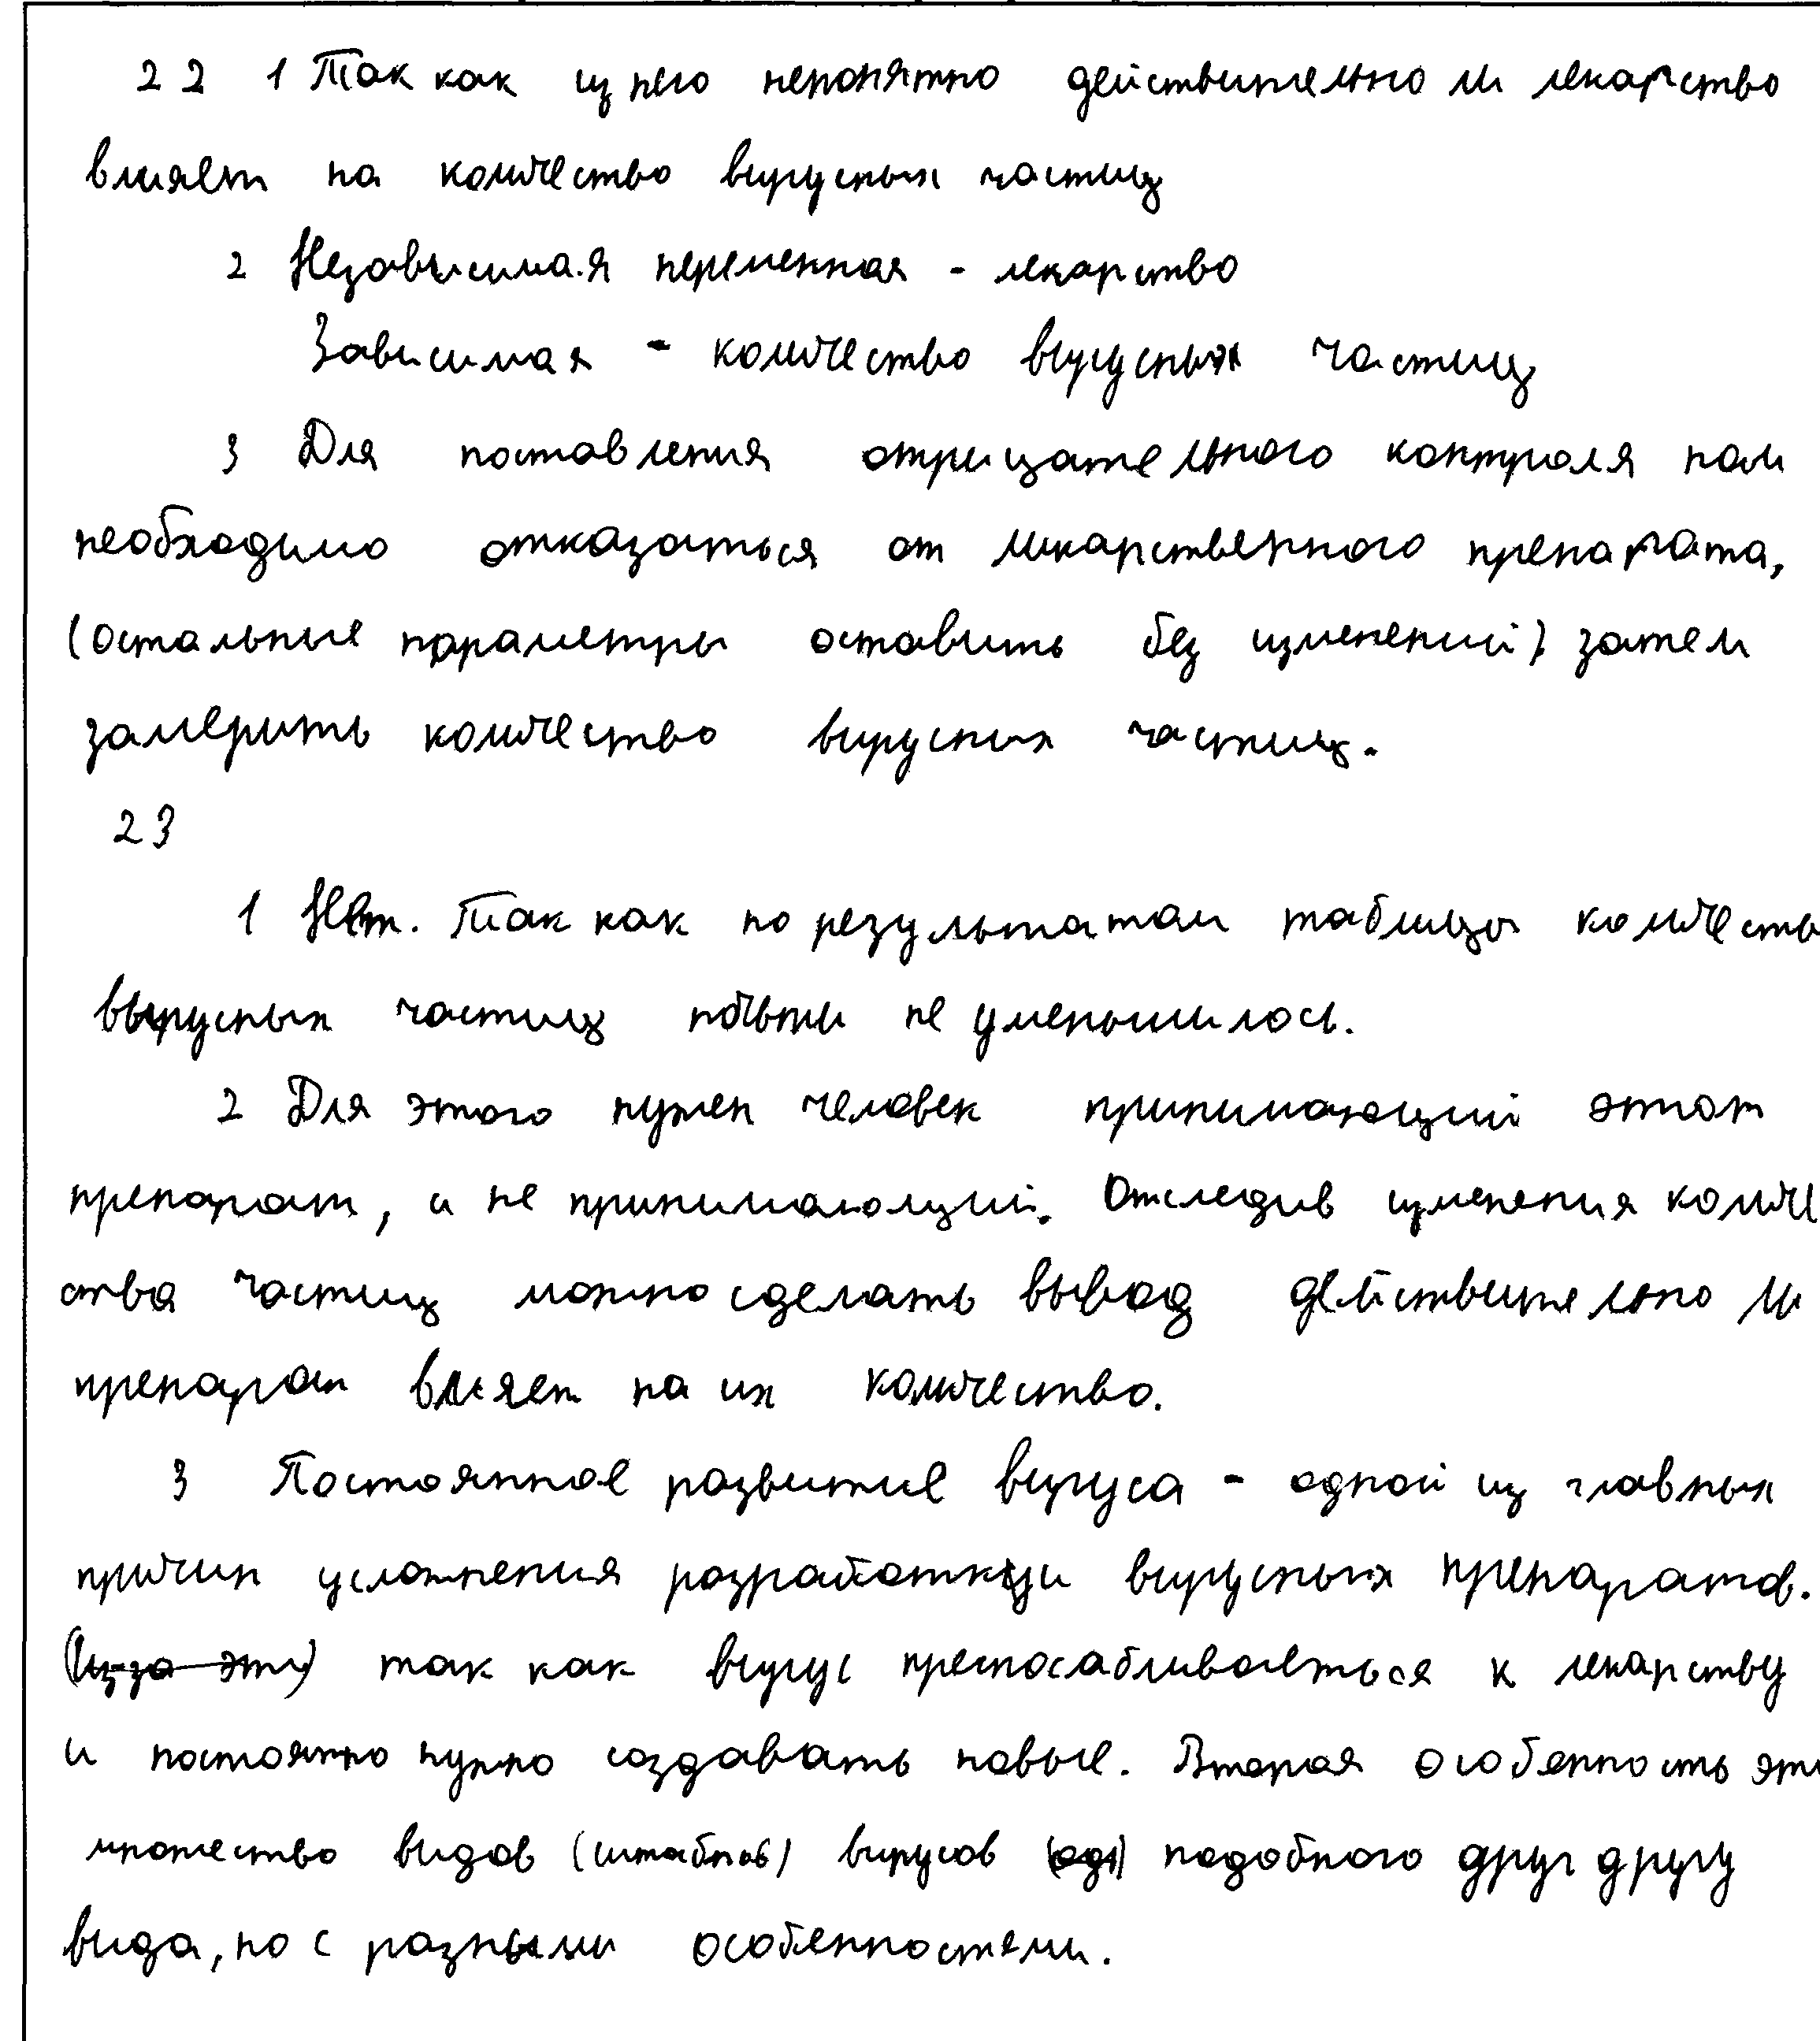 22 1 Так как из него непонятно действительно ли лекарство
влияет на количество вирусных частиц
2 Независимая переменная - лекарство
Зависимая - количество вирусных частиц
3 Для поставления отрицательного контроля нам
необходимо отказаться от лекарственного препарата,
(остальные параметры оставить без изменений) затем
замерить количество вирусных частиц.
23
1 Нет. Так как по результатам таблицы количеств
вирусных частиц почти не уменьшилось.
2 Для этого нужен человек принимающий этот
препарат, и не принимающий. Отследив изменения количе
ства частиц можно сделать вывод действительно ли
препарат влияет на их количество.
3 Постоянное развитие вируса - одной из главных
причин усложнения разработки вирусных препаратов.
(Из-за эти) так как вирус преспосабливаеться к лекарству
и постоянно нужно создавать новые. Вторая особенность это
множество видов (штабнов) вирусов подобного друг другу
вида, но с разными особенностями.